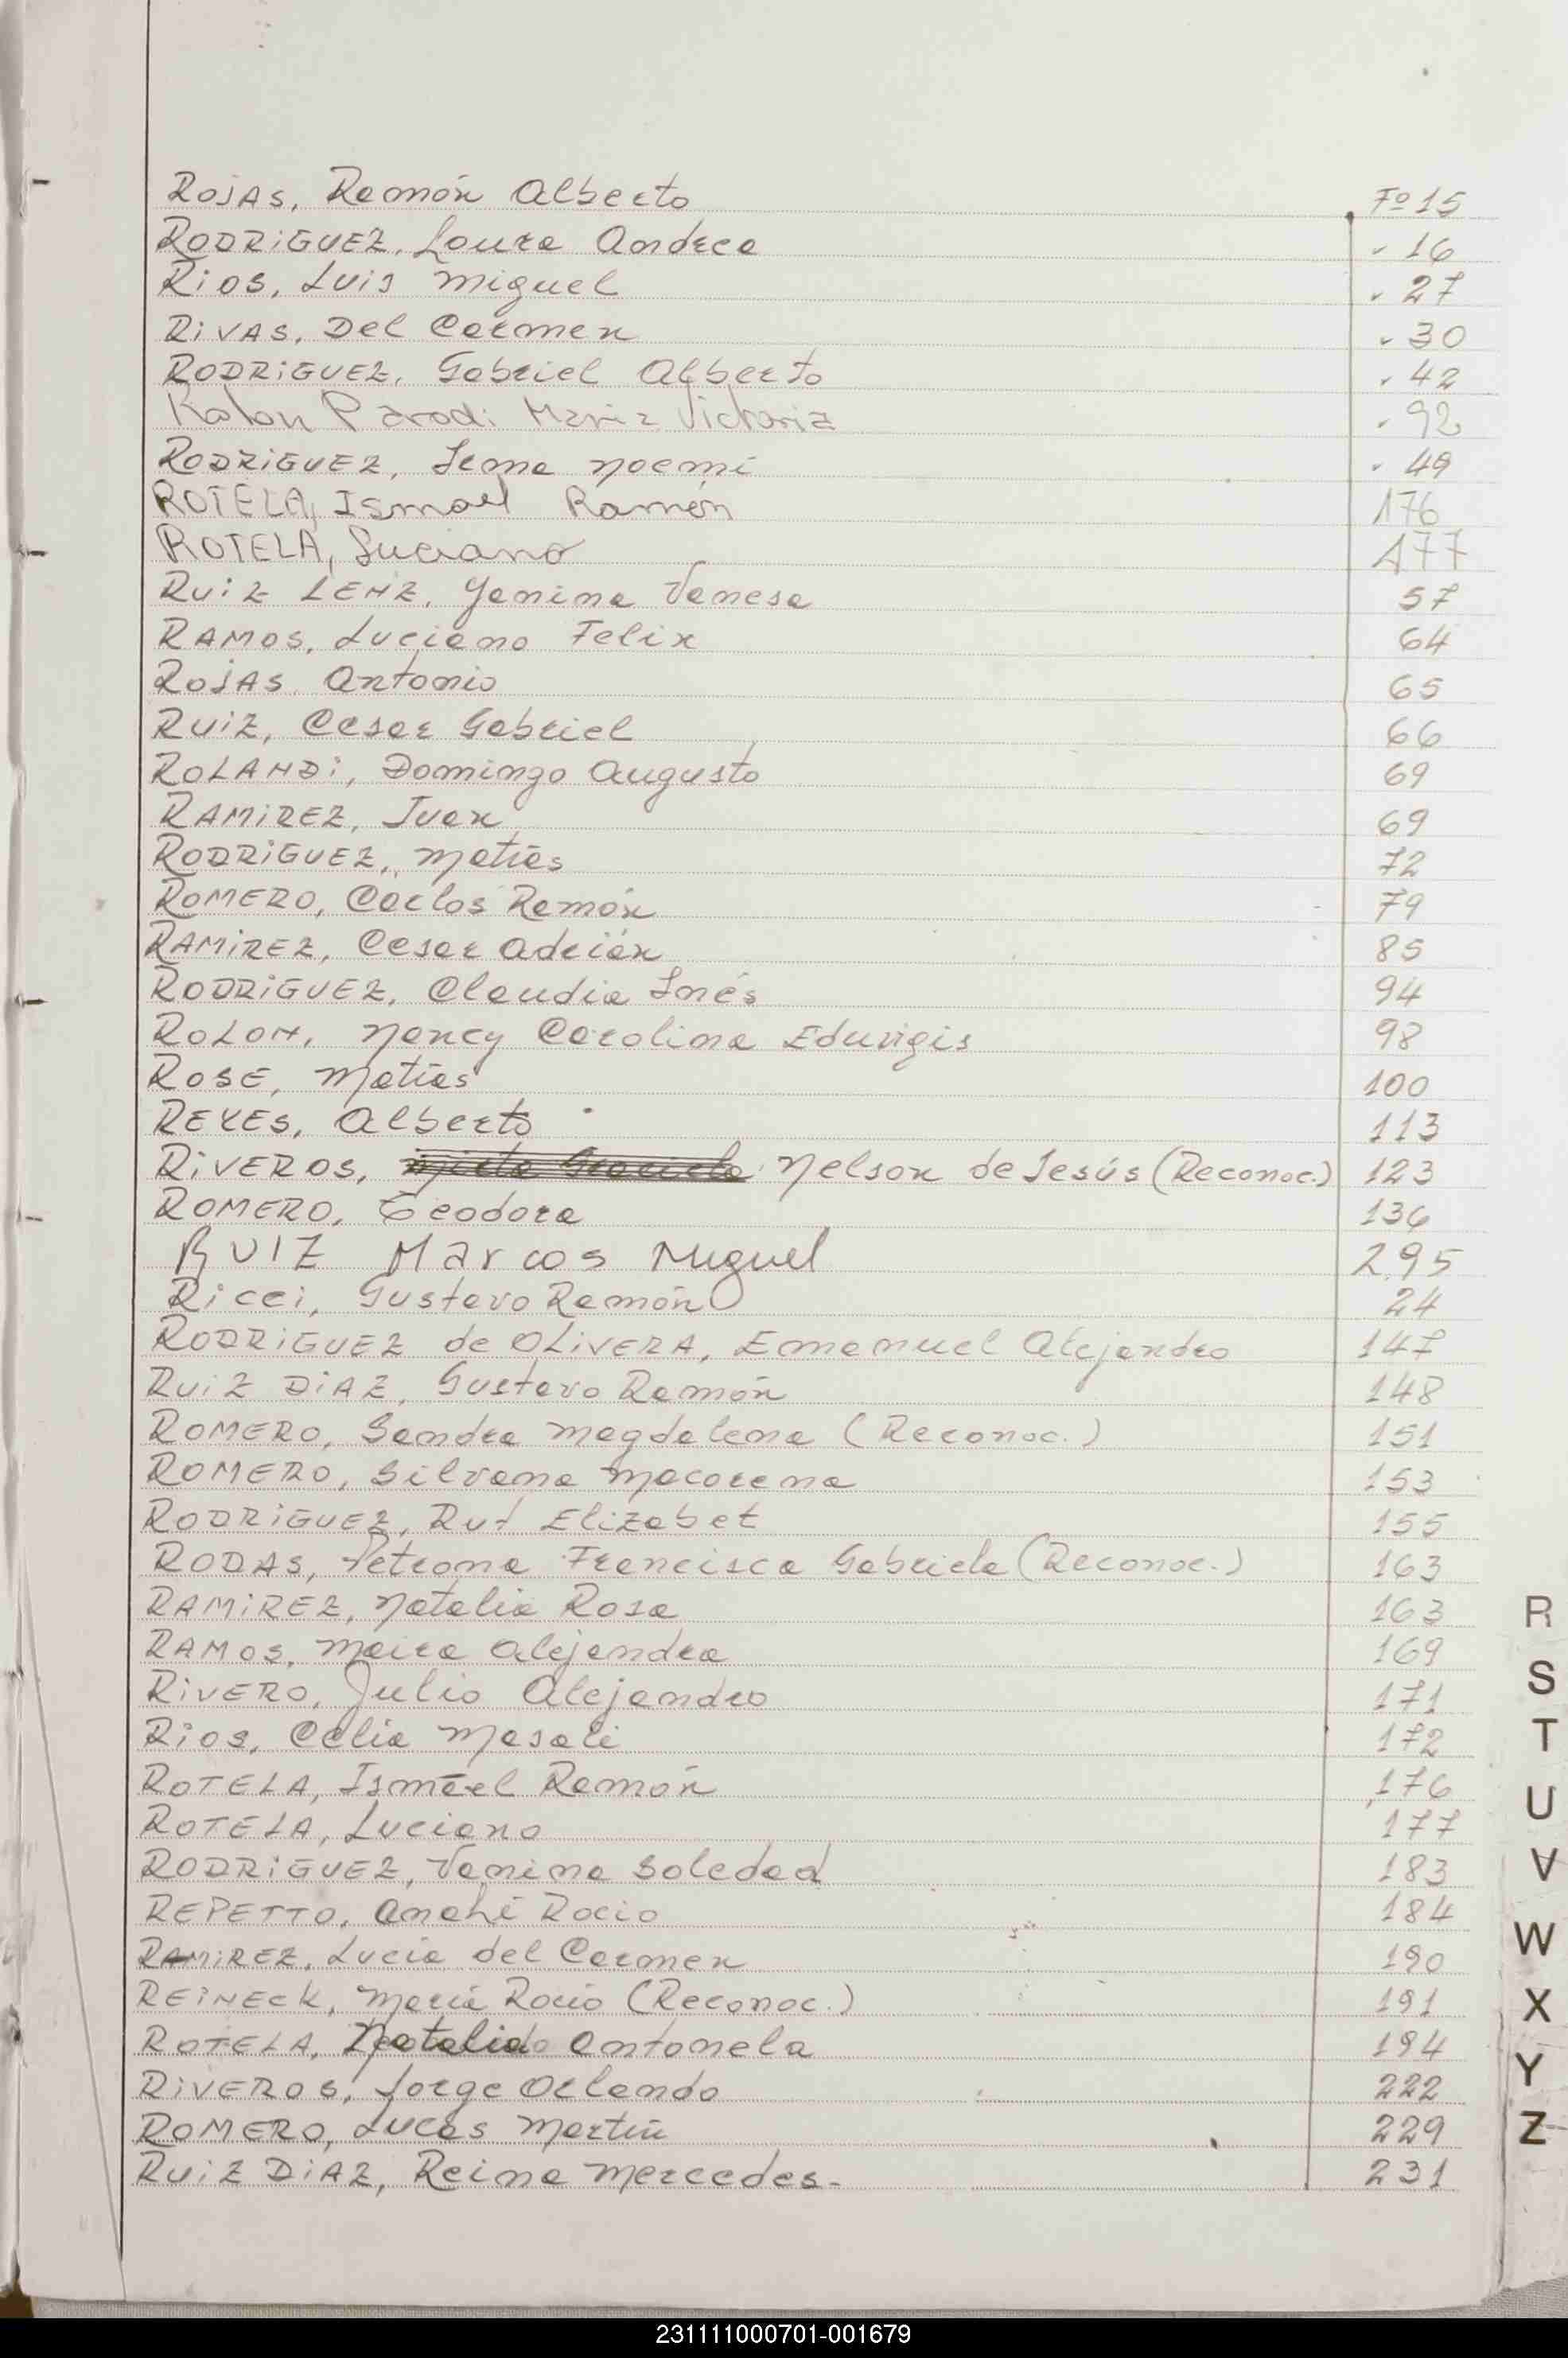 ROJAS, Ramón Alberto Fº 15
RODRIGUEZ, Laura Andrea " 16
RIOS, Luis Miguel " 27
RIVAS, Del Carmen " 30
RODRIGUEZ, Gabriel Alberto " 42
Rolon Parodi Maria Victoria " 92
RODRIGUEZ, Irma Noemí " 49
ROTELA, Ismael Ramón 176
ROTELA, Luciano 177
RUIZ LENZ, Yanina Vanesa 57
RAMOS, Luciano Felix 64
ROJAS Antonio 65
RUIZ, Cesar Gabriel 66
ROLANDI, Domingo Augusto 69
RAMIREZ, Juan 69
RODRIGUEZ, Matías 72
ROMERO, Carlos Ramón 79
RAMIREZ, Cesar Adrián 85
RODRIGUEZ, Claudia Inés 94
ROLON, Nancy Carolina Eduvigis 98
ROSE, Matías 100
REYES, Alberto 113
RIVEROS, Nelson de Jesús (Reconoc.) 123
ROMERO, Teodora 136
RUIZ Marcos Miguel 295
Ricci, Gustavo Ramón 24
RODRIGUEZ de OLIVERA, Emmanuel Alejandro 147
RUIZ DIAZ, Gustavo Ramón 148
ROMERO, Sandra Magdalena (Reconoc.) 151
ROMERO, Silvana Macarena 153
RODRIGUEZ, Rut Elizabet 155
RODAS, Petrona Francisca Gabriela (Reconoc.) 163
RAMIREZ, Natalia Rosa 163
RAMOS, Maira Alejandra 169
RIVERO, Julio Alejandro 171
RIOS, Celia Masali 172
ROTELA, Ismael Ramón 176
ROTELA, Luciano 177
RODRIGUEZ, Vanina Soledad 183
REPETTO, Anahí Rocio 184
RAMIREZ, Lucia del Carmen 190
REINECK, María Rocio (Reconoc.) 191
ROTELA, Natalia Antonela 194
RIVEROS, Jorge Orlando 222
ROMERO, Lucas Martín 229
RUIZ DIAZ, Reina Mercedes- 231
R
S
T
U
V
W
X
Y
Z
231111000701-001679